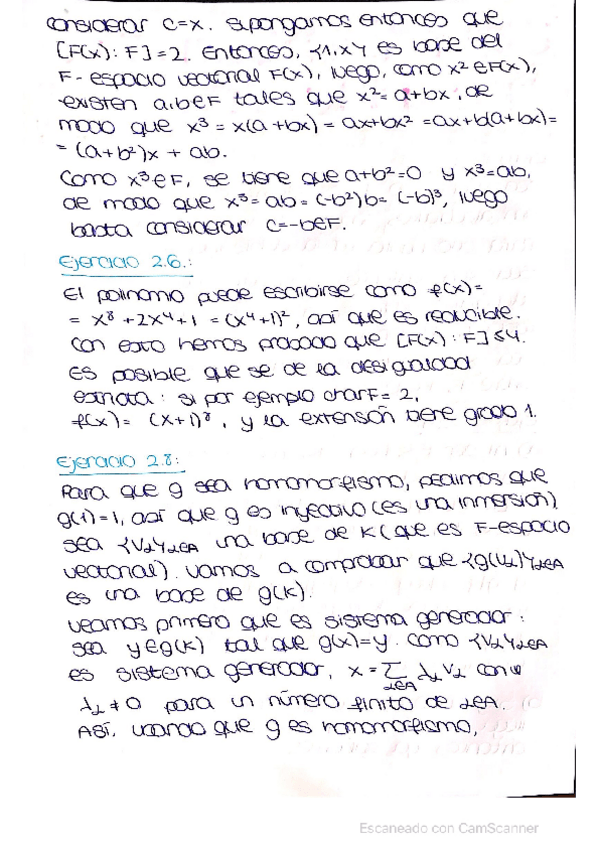 considerar C=x. Supongamos entonces que
[F(x): F]=2. Entonces, {1,x} es base del
F-espacio vectorial F(x), luego, como x²∈F(x),
existen a,b∈F tales que x²=a+bx, de
modo que x³ = x(a+bx) = ax+bx² =ax+b(a+bx)=
= (a+b²)x + ab.
Como x³∈F, se tiene que a+b²=0 y x³=ab,
de modo que x³=ab=(-b²)b=(-b)³, luego
basta considerar C=-b∈F.
Ejercicio 2.6.:
El polinomio puede escribirse como f(x)=
= x⁸+2x⁴+1 = (x⁴+1)², así que es reducible.
Con esto hemos probado que [F(x):F]≤4.
Es posible que se de la desigualdad
estricta: si por ejemplo charF=2,
f(x)= (x+1)⁸, y la extensión tiene grado 1.
Ejercicio 2.8:
Para que g sea homomorfismo, pedimos que
g(1)=1, así que g es inyectivo (es una inmersión)
sea {Vα}α∈A una base de K (que es F-espacio
vectorial). Vamos a comprobar que {g(Vα)}α∈A
es una base de g(K).
Veamos primero que es sistema generador:
sea y∈g(K) tal que g(x)=y. Como {Vα}α∈A
es sistema generador, x=∑α∈A λα Vα con
λα≠0 para un número finito de α∈A.
Así, usando que g es homomorfismo,
Escaneado con CamScanner